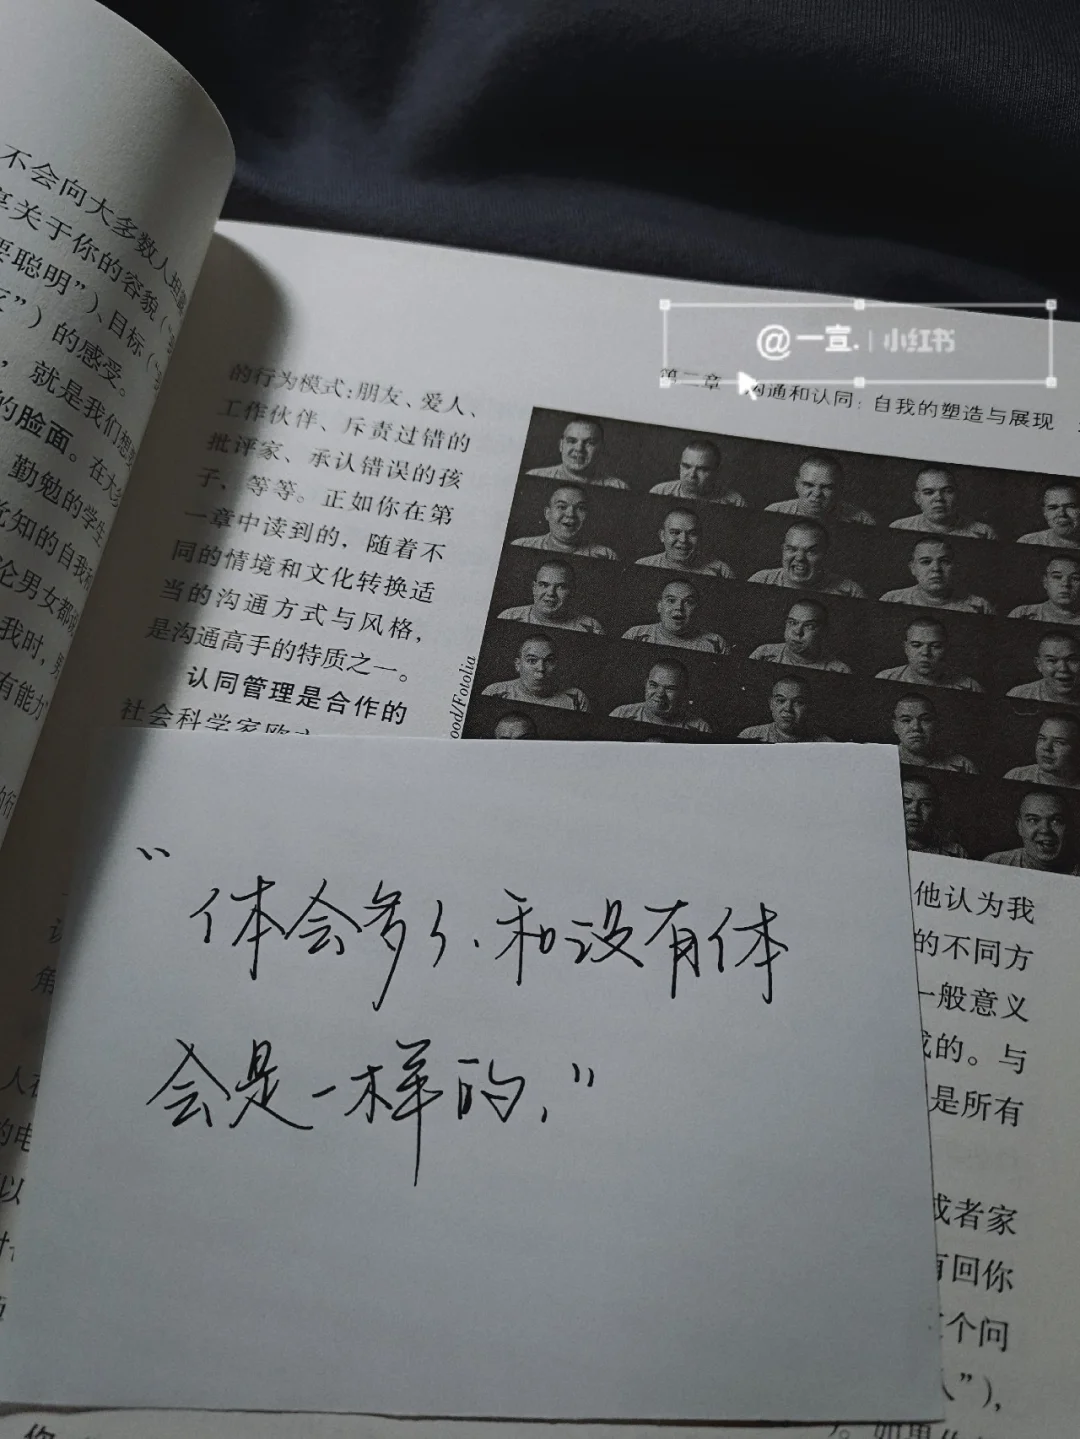 不会向大多数人坦露
享关于你的容貌（“
要聪明”）、目标（“
”）的感受。
，就是我们想要
的脸面。在大多
勤勉的学生
觉知的自我和
论男女都
我时，
有能力
@一壹. | 小红书
第二章 沟通和认同：自我的塑造与展现
的行为模式：朋友、爱人、
工作伙伴、斥责过错的
批评家、承认错误的孩
子，等等。正如你在第
一章中读到的，随着不
同的情境和文化转换适
当的沟通方式与风格，
是沟通高手的特质之一。
认同管理是合作的
社会科学家欧
ood/Fotolia
“体会多了、和没有体
会是一样的.”
他认为我
的不同方
一般意义
成的。与
是所有
或者家
有回你
个问
人”），